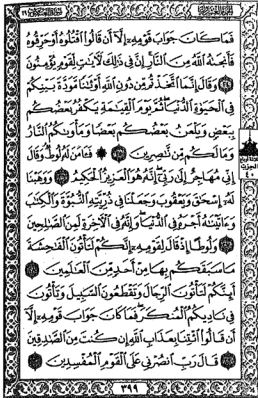 فَمَا كَانَ جَوَابَ قَوْمِهِۦٓ إِلَّآ أَن قَالُوا۟ ٱقْتُلُوهُ أَوْ حَرِّقُوهُ
فَأَنجَىٰهُ ٱللَّهُ مِنَ ٱلنَّارِ إِنَّ فِى ذَٰلِكَ لَءَايَٰتٍ لِّقَوْمٍ يُؤْمِنُونَ
٢٤ وَقَالَ إِنَّمَا ٱتَّخَذْتُم مِّن دُونِ ٱللَّهِ أَوْثَٰنًا مَّوَدَّةَ بَيْنِكُمْ
فِى ٱلْحَيَوٰةِ ٱلدُّنْيَا ثُمَّ يَوْمَ ٱلْقِيَٰمَةِ يَكْفُرُ بَعْضُكُم
بِبَعْضٍ وَيَلْعَنُ بَعْضُكُم بَعْضًا وَمَأْوَىٰكُمُ ٱلنَّارُ
وَمَا لَكُم مِّن نَّٰصِرِينَ ٢٥ ۞ فَـَٔامَنَ لَهُۥ لُوطٌ وَقَالَ
إِنِّى مُهَاجِرٌ إِلَىٰ رَبِّىٓ إِنَّهُۥ هُوَ ٱلْعَزِيزُ ٱلْحَكِيمُ ٢٦ وَوَهَبْنَا
لَهُۥٓ إِسْحَٰقَ وَيَعْقُوبَ وَجَعَلْنَا فِى ذُرِّيَّتِهِ ٱلنُّبُوَّةَ وَٱلْكِتَٰبَ
وَءَاتَيْنَٰهُ أَجْرَهُۥ فِى ٱلدُّنْيَا وَإِنَّهُۥ فِى ٱلْءَاخِرَةِ لَمِنَ ٱلصَّٰلِحِينَ
٢٧ وَلُوطًا إِذْ قَالَ لِقَوْمِهِۦٓ إِنَّكُمْ لَتَأْتُونَ ٱلْفَٰحِشَةَ
مَا سَبَقَكُم بِهَا مِنْ أَحَدٍ مِّنَ ٱلْعَٰلَمِينَ ٢٨
أَئِنَّكُمْ لَتَأْتُونَ ٱلرِّجَالَ وَتَقْطَعُونَ ٱلسَّبِيلَ وَتَأْتُونَ
فِى نَادِيكُمُ ٱلْمُنكَرَ فَمَا كَانَ جَوَابَ قَوْمِهِۦٓ إِلَّآ
أَن قَالُوا۟ ٱئْتِنَا بِعَذَابِ ٱللَّهِ إِن كُنتَ مِنَ ٱلصَّٰدِقِينَ
٢٩ قَالَ رَبِّ ٱنصُرْنِى عَلَى ٱلْقَوْمِ ٱلْمُفْسِدِينَ ٣٠
٣٩٩